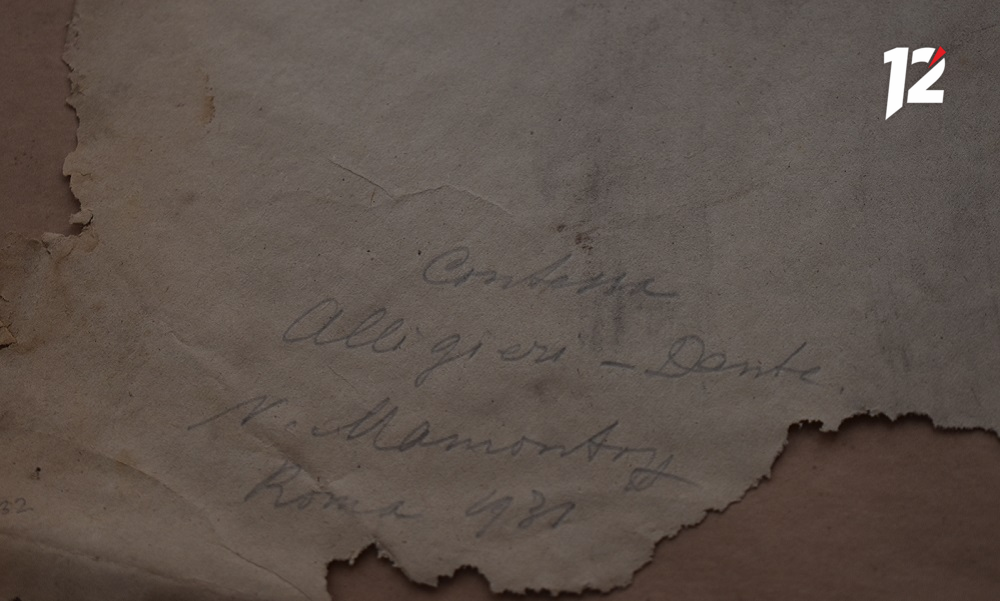 12
Contessa
Alligieri – Dante.
N. Mamontoff
Roma 1931
32